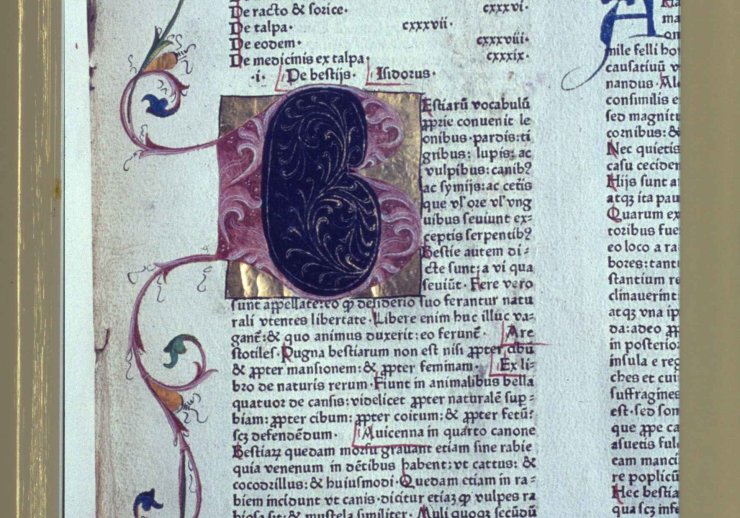 De racto & sorice · cxxxvi ·
De talpa · cxxxvii ·
De eodem · cxxxviii ·
De medicinis ex talpa cxxxix ·
·i· De bestijs · Isidorus ·
BEstiarũ vocabulũ
ꝓprie conuenit le
onibus · pardis: ti
gribus: lupis: ac
vulpibus: canibꝰ
ac symijs: ac cetis
que vl' ore vl' vng
uibus seuiunt ex-
ceptis serpentibꝰ
Bestie autem di-
cte sunt: a vi qua
seuiũt · Fere vero
sunt appellate: eo ꝙ desiderio suo ferantur natu
rali vtentes libertate · Libere enim huc illuc va-
ganẽ: & quo animus duxerit: eo ferunẽ · Are
stotiles · Pugna bestiarum non est nisi ꝓpter cibũ
& ꝓpter mansionem: & ꝓpter feminam · Ex li-
bro de naturis rerum · Fiunt in animalibus bella
quatuor de causis: videlicet ꝓpter naturalẽ sup̱-
biam: ꝓpter cibum: ꝓpter coitum: & ꝓpter fetuʒ
scȝ defendẽdum · Auicenna in quarto canone
Bestiaꝝ quedam morsu grauant etiam sine rabie
quia venenum in dẽtibus habent: vt cattus: &
cocodrillus: & huiusmodi · Quedam etiam in ra-
biem incidunt vt canis · dicitur etiaȝ ꝙ vulpes ra
biosa sit: & mustela similiter · Muli quoqȝ secũdũ
A
ma
on
mile felli hor
causatiuũ v
nandus · Alo
consimilis e
sed magnitu
cornibus: &
Nec quietis
casu ceciden
Hijs sunt a
atqȝ ita pau
Quarum ex
toribus fue
eo loco a ra
bores: tant
stantium re
clinauerint
atqȝ vna ip
da: adeo ꝓp
in posterio
insula e reg
ches et cui
suffragines
est · sed som
que ꝓpe ca
asuetis ful
eam manci
re poplicu
Hec bestia
qua scȝ inf